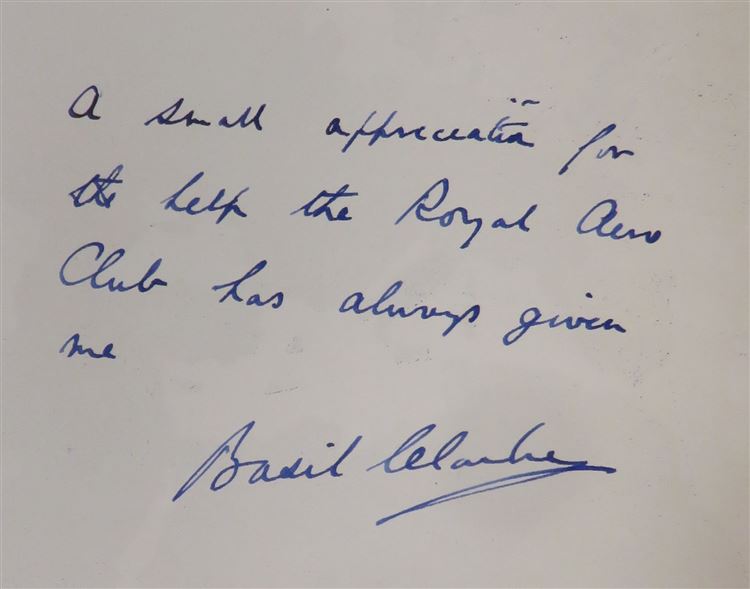 A small appreciation for
the help the Royal Aero
Club has always given
me
Basil Clarke